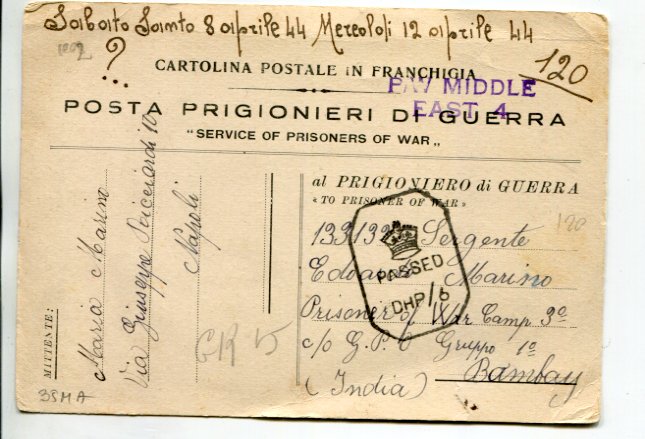 Sabato Santo 8 aprile 44 Mercoledi 12 aprile 44
?
...
120
CARTOLINA POSTALE IN FRANCHIGIA
PAV MIDDLE
EAST 4
POSTA PRIGIONIERI DI GUERRA
"SERVICE OF PRISONERS OF WAR„
MITTENTE:
Maria Marino
Via Giuseppe 10
Napoli
35MA
al PRIGIONIERO di GUERRA
«TO PRISONER OF WAR»
120
Sergente
Edoardo Marino
Prisoner of War Camp 3º
c/o G.P.O Gruppo 1º
Bambay
(India)
PASSED
DHP/6